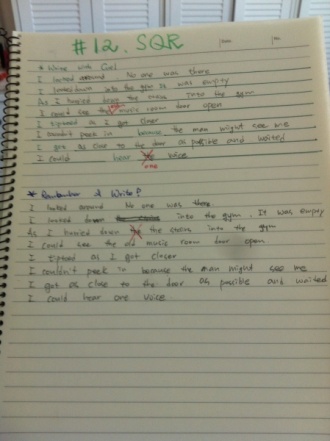 #12. SQR
I looked around. No one was there
I looked down into the gym It was empty
As I hurried down the stairs into the gym
I could see the music room door open
I tiptoed as I got closer
I couldn't peek in because the man might see me
I got as close to the door as possible and waited
I could hear voice
one
* Remember & Write?
I looked around. No one was there.
I looked down into the gym. It was empty
As I hurried down the stairs into the gym
I could see the old music room door open
I tiptoed as I got closer
I couldn't peek in because the man might see me
I got as close to the door as possible and waited
I could hear one voice.